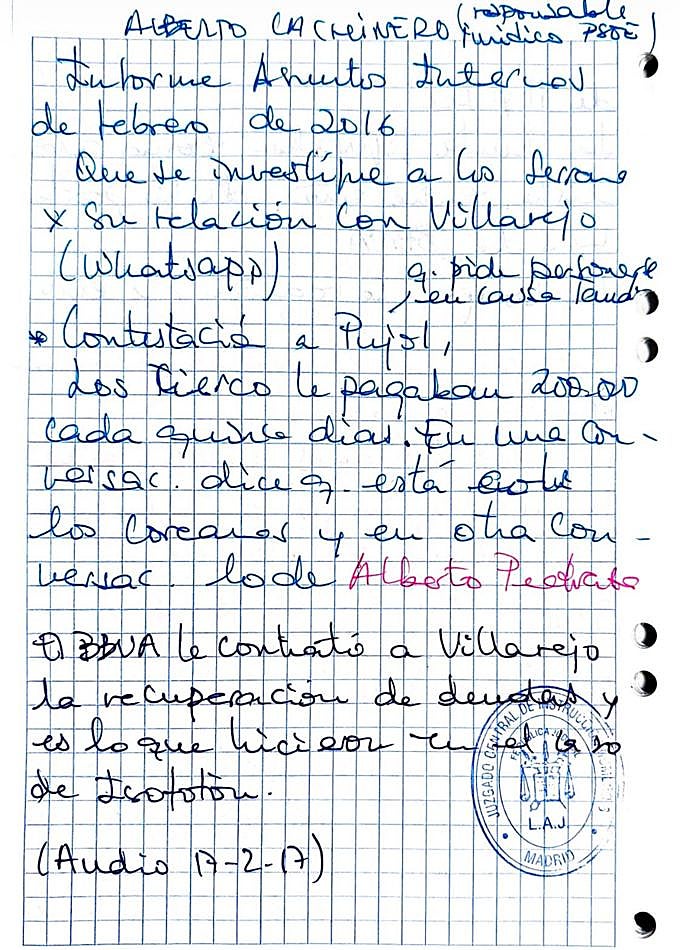 ALBERTO CACHINERO (responsable
jurídico PSOE)
Informe Asuntos Internos
de febrero de 2016
Que se investigue a los Serrano
x Su relación Con Villarejo
(Whatsapp)
q. pide personarse
en causa Tándem
* Contestació a Pujol,
Los Cierco le pagaban 200.000
cada quince días. En una con-
versac. dice q. está
los coreanos y en otra con-
versac. lo de Alberto Pedraza
El BBVA le contrató a Villarejo
la recuperación de deudas y
es lo que hicieron en el caso
de Isofotón.
(Audio 17-2-17)
JUZGADO CENTRAL DE INSTRUCCIÓN
L.A.J.
MADRID